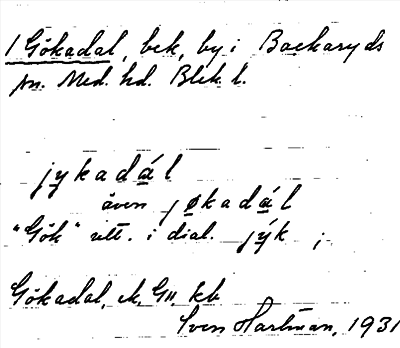 1 Gökadal, bek, by i Backaryds
sn. Med. hd. Blek. l.
jykadál
även jøkadál
"Gök" utt. i dial. jýk ;
Gökadal, ek, GII, kb
Sven Hartman, 1931